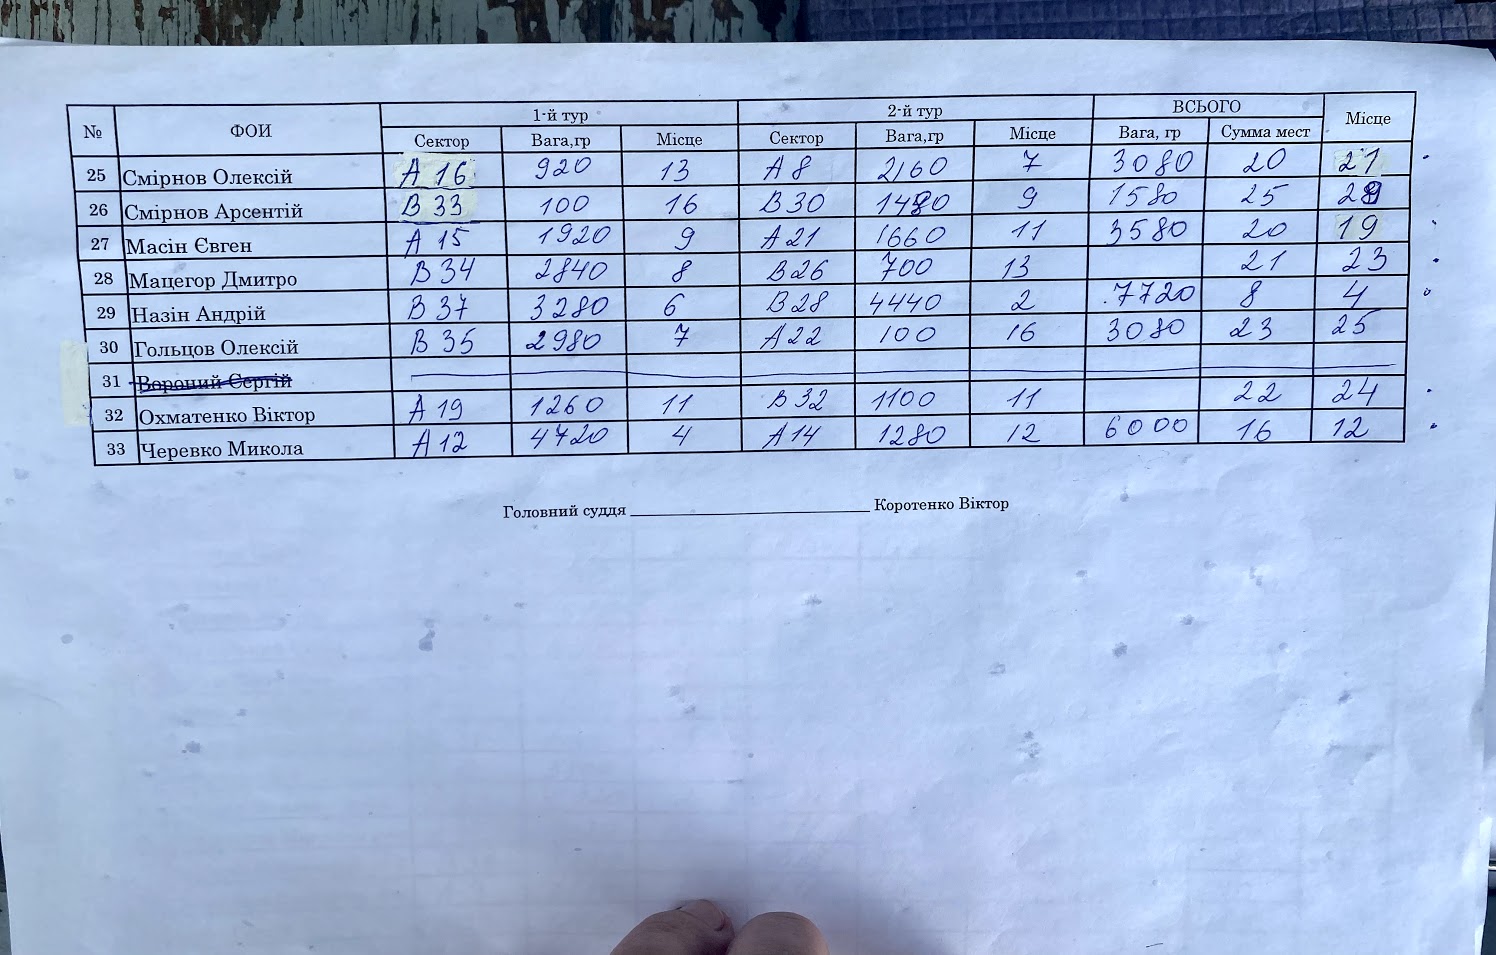 № ФОИ 1-й тур 2-й тур ВСЬОГО Місце
Сектор Вага,гр Місце Сектор Вага,гр Місце Вага, гр Сумма мест
25 Смірнов Олексій А 16 920 13 А 8 2160 7 3080 20 21
26 Смірнов Арсентій В 33 100 16 В 30 1480 9 1580 25 28
27 Масін Євген А 15 1920 9 А 21 1660 11 3580 20 19
28 Мацегор Дмитро В 34 2840 8 В 26 700 13 21 23
29 Назін Андрій В 37 3280 6 В 28 4440 2 7720 8 4
30 Гольцов Олексій В 35 2980 7 А 22 100 16 3080 23 25
31 Вороний Сергій
32 Охматенко Віктор А 19 1260 11 В 32 1100 11 22 24
33 Черевко Микола А 12 4720 4 А 14 1280 12 6000 16 12
Головний суддя Коротенко Віктор